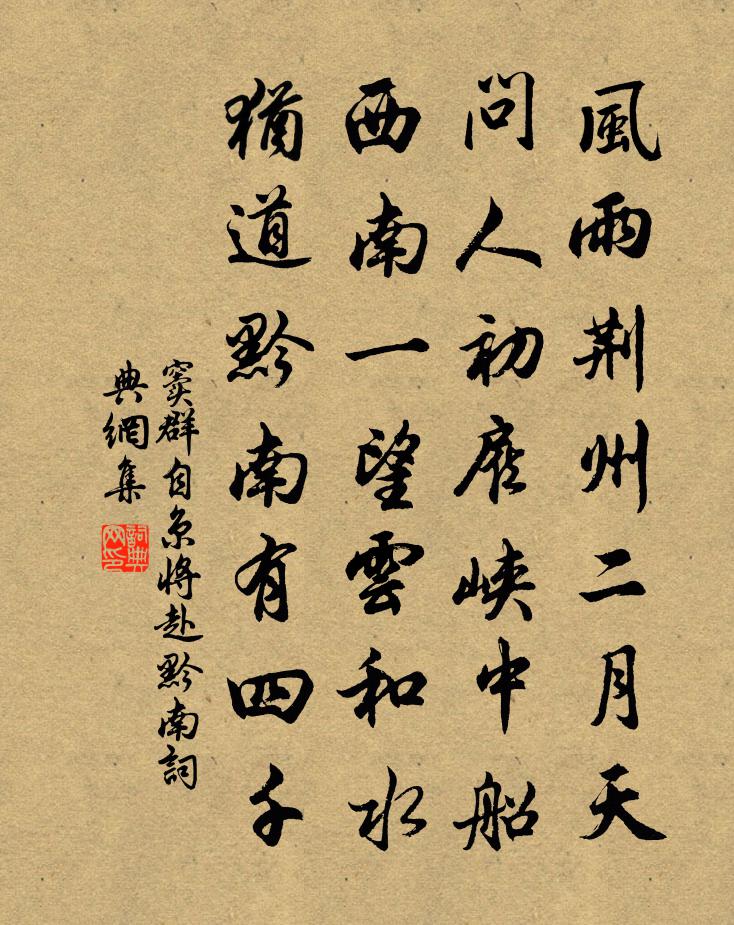 風雨荆州二月天
問人初雇峽中船
西南一望雲和水
猶道黔南有四千
竇群自京將赴黔南詞
典網集
詞典
网印